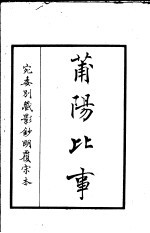 莆陽比事
宛委別藏影鈔明覆宋本